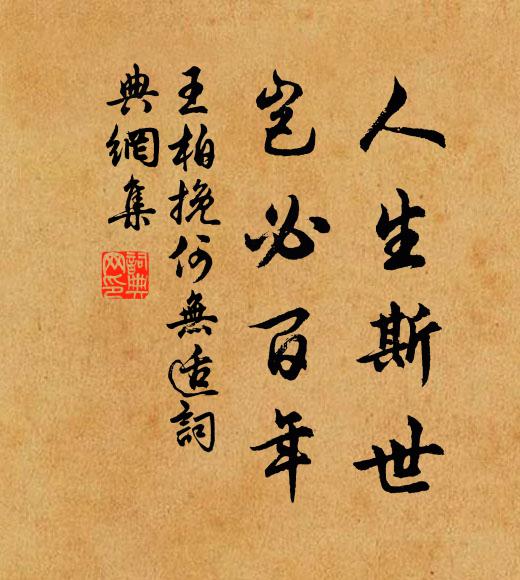 人生斯世
豈必百年
王柏挽何無适詞
典網集
詞典
网印